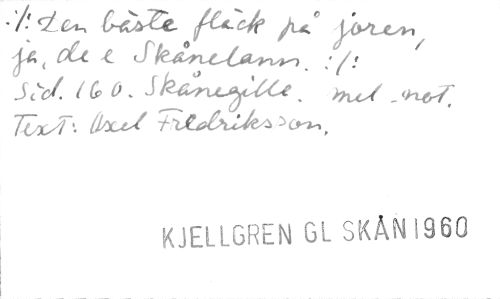 :/: Den bäste fläck på joren,
ja, de e Skånelann. :/:
Sid. 160. Skånegille. mel-not.
Text: Axel Fredriksson.
KJELLGREN GL SKÅN 1960